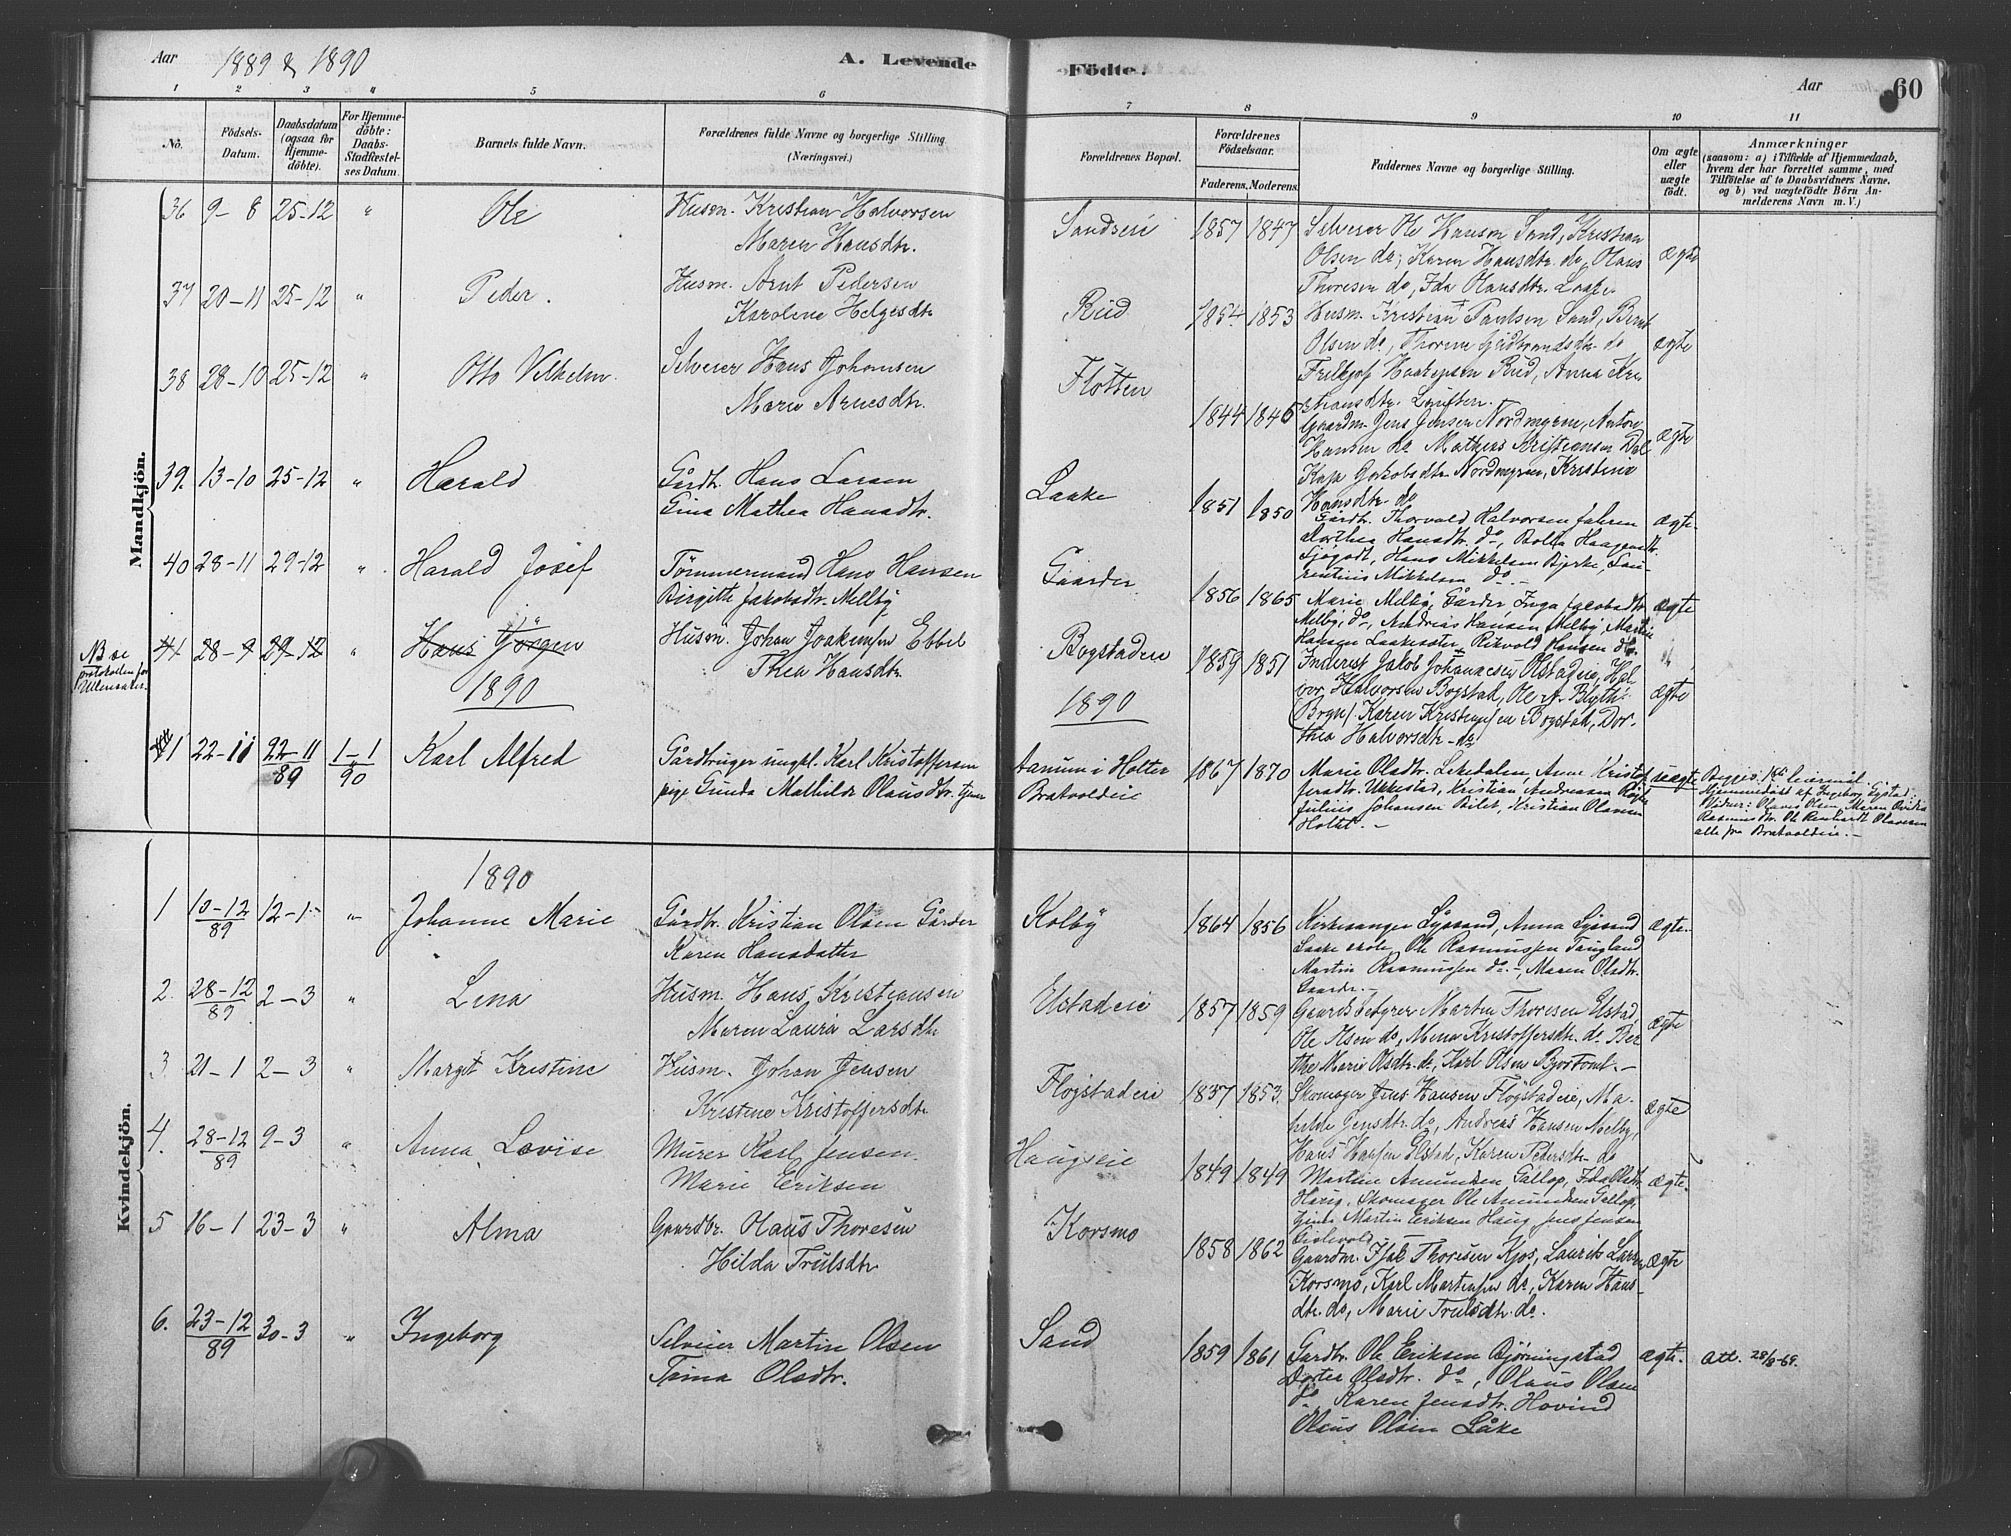 Aar 1889 & 1890
A. Levende Födte.
Aar
60
1 2 3 4 5 6 7 8 9 10 11
No.
Födsels-Datum.
Daabsdatum (ogsaa for Hjemmedöbte).
For Hjemmedöbte: Daabs-Stadfæstelses Datum.
Barnets fulde Navn.
Forældrenes fulde Navne og borgerlige Stilling (Næringsvei.)
Forældrenes Bopæl.
Forældrenes Födselsaar.
Faderens. Moderens.
Faddernes Navne og borgerlige Stilling.
Om ægte eller uægte födt.
Anmærkninger
(saasom: a) i Tilfælde af Hjemmedaab, hvem der har forrettet samme, med Tilföielse af to Daabsvidners Navne, og b) ved uægtefödte Börn Anmelderens Navn m. V.)
Mandkjön.
36 9-8 25-12 " Ole Husm. Kristian Halvorsen
Maren Hansdtr.
Sandseie 1857 1847 Selveier Ole Hansen Sand, Kristian
Olsen do, Karen Hansdtr. do, Olaus
Thoresen do, Ida Olausdtr. Laake
ægte
37 20-11 25-12 " Peder. Husm. Arnt Pedersen
Karoline Helgesdtr
Rud 1854 1853 Husm. Kristian Paulsen Sand, Bernt
Olsen do, Thorine Guldbrandsdtr. do
ægte
38 28-10 25-12 " Otto Vilhelm. Selveier Hans Johansen
Marie Arnesdtr.
Flotten 1844 1846
Gaardm. Jens Jensen Nordmyren, Anton
Hansen do Mathias Kristiansen Dal
Kaja Jakobsdtr Nordmyren, Kristine
Hansdtr. do
ægte
39. 13-10 25-12 " Harald Gårdbr. Hans Larsen
Gina Mathea Hansdtr.
Laake 1851 1850 Gårdbr. Thorvald Halvorsen
Dorthea Hansdtr. do, Haagensdtr.
Hans Mikkelsen Bjerke, Lau-
rentius Mikkelsen do.
ægte.
40 28-11 29-12 " Harald Josef Tømmermand Hans Hansen
Birgitte Jakobsdtr. Melby
Gaarder 1856 1865 Marie Melby, Gårder Inga Jakobsdtr
Melby, do, Andreas Hansen Melby, Martin
Hansen Laakesæter, Rikvold Hansen do.
ægte
NB se
protokollen for
Ullensaker.
41 28-9 29-12 " Hans Jørgen Husm. Johan Joakimsen Ebbel
Thea Hansdtr
Bogstadeie 1859 1851 Inderst Jakob Johannesen Olstadeie, Hal-
vor Halvorsen Bogstad, Ole
Karen Kristiansen Bogstad, Dor-
thea Halvorsdtr. do
ægte
1890
1890
1 22-11 22-11/89 1-1/90 Karl Alfred Gårdbruger ungkl. Karl Kristoffersen
pige Gunda Mathilde Olausdtr. tjen
Aanum i Holter
Bratvoldeie
1867 1870 Marie Olsdtr. Lekedalen, Anne Kristof-
fersdtr. Ukkestad, Kristian Andreasen
Julius Johansen Bilet, Kristian Olavsen
Holst. -
uægte
Begges 1ste leiermål.
Hjemmedøbt af Ingeborg
Vidner: Olaves Olsen, Maren
Rasmusdtr. Ole Reinhardt Olavesen
alle fra Bratvoldeie. -
Kvindekjön.
1890
1 10-12/89 12-1 " Johanne Marie Gårdbr. Kristian Olsen Gårder
Karen Hansdatter
Kolby 1864 1856 Kirkesanger Lysand, Anna Lysand
Laake skole, Ole Rasmussen Tangland
Martin Rasmussen do. -, Maren Olsdtr.
Gaarder. -
ægte.
2. 28-12/89 2-3 " Lina Husm. Hans Kristiansen
Maren Laurie Larsdtr
Elstadeie 1857 1859 Gaardbestyrer Martin Thoresen Elstad,
Ole Olsen do, Mina Kristoffersdtr. do Ber-
the Marie Olsdtr. do, Karl Olsen Bjørtomt. -
ægte
3. 21-1 2-3 " Margit Kristine Husm. Johan Jensen
Kristine Kristoffersdtr
Fløgstadeie 1837 1853. Skomager Jens Hansen Fløgstadeie, Ma-
thilde Jensdtr. do, Andreas Hansen Melby,
Hans Hansen Elstad, Karen Pedersdtr. do
ægte
4. 28-12/89 9-3 " Anna Lovise Murer Karl Jensen
Marie Eriksen
Haugseie 1849 1849 Martine Amundsen Gallop, Ida Olsdtr.
Haug, Skomager Ole Amundsen Gallop,
Martin Eriksen Haug Jens Jensen
ægte.
5 16-1 23-3 " Alma Gaardbr. Olaus Thoresen
Hilda Trulsdtr
Korsmo 1858 1862 Gaardm. Isak Thoresen Kjos, Laurits Larsen
Korsmo, Karl Martinsen do, Karen Hans-
dtr. do, Marie Trulsdtr. do.
ægte
6. 23-12/89 30-3 " Ingeborg Selveier Martin Olsen
Olsdtr.
Sand 1859 1861 Gardbr. Ole Eriksen Bjørningstad
Dorter Olsdtr. do, Olaus Olsen
do Karen Jensdtr. Hovind
Olaus Olsen Låke
ægte.
Att. 28/8-69.